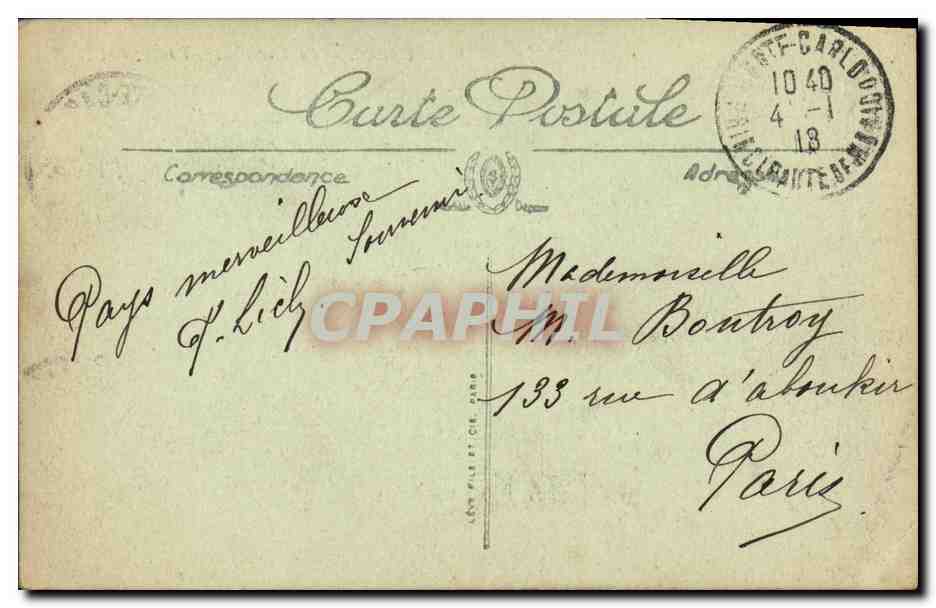 Carte Postale
Correspondance
Adresse
MONTE-CARLO
10 40
4 -1
18
PRINCIPAUTE DE MONACO
Pays merveilleux
Souvenir
CPAPHIL
Mademoiselle
M. Boutroy
133 rue d'aboukir
Paris
LÉVY FILS ET CIE, PARIS